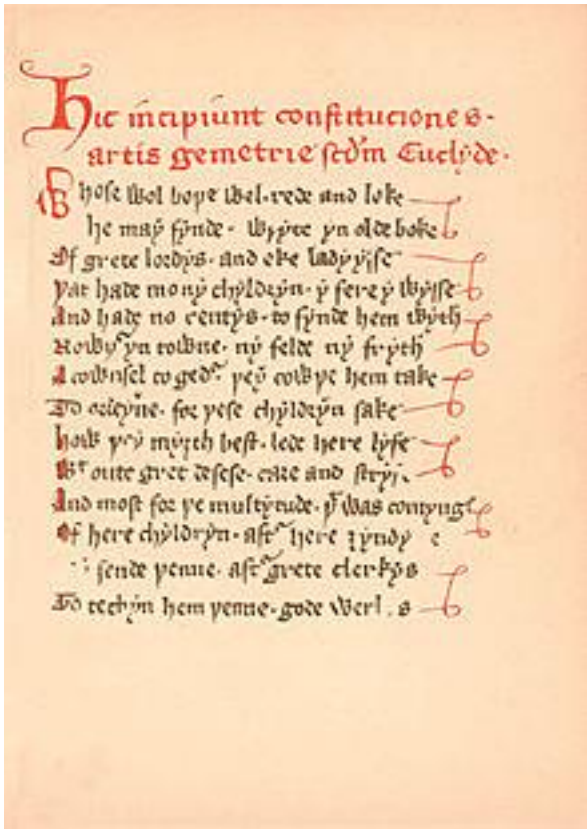 Hic incipiunt constituciones
artis gemetrie scdm Euclyde.
Whose wol bope wel rede and loke
he may fynde wryte yn olde boke
Of grete lordys and eke ladyysse
Þat hade mony chyldryn y fere y wysse
And hade no rentys to fynde hem wyth
Nowþr yn towne ny felde ny fryth
A cownsel togedr þey cowþe hem take
To ordeyne for þese chyldryn sake
How þey myȝth best lede here lyfe
Wt oute gret desese care and stry
And most for þe multytude þt was comyng
Of here chyldryn aftr here
sende þenne aftr grete clerkys
To techyn hem þenne gode